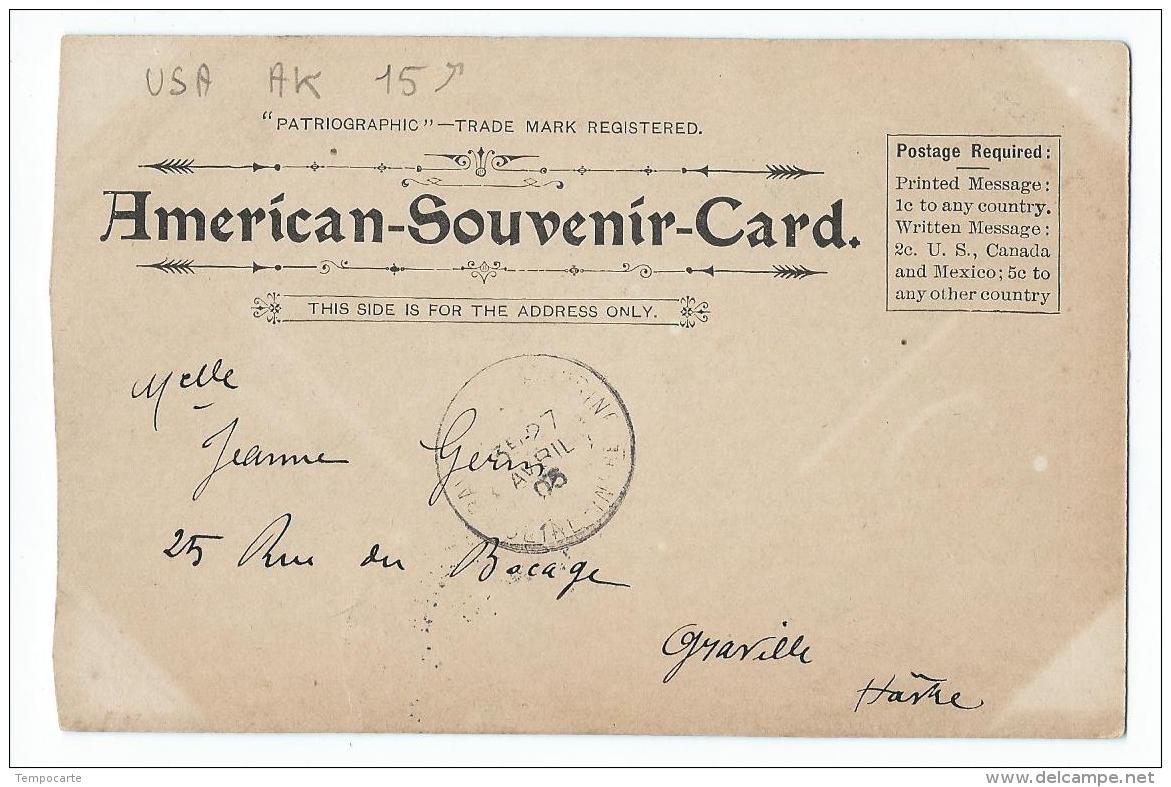 USA AK 15
"PATRIOGRAPHIC"—TRADE MARK REGISTERED.
American-Souvenir-Card.
THIS SIDE IS FOR THE ADDRESS ONLY.
Postage Required:
Printed Message:
1c to any country.
Written Message:
2c. U. S., Canada
and Mexico; 5c to
any other country
Melle
Jeanne
27
AVRIL
05
25 Rue du Bocage
Graville
Tempocarte
www.delcampe.net